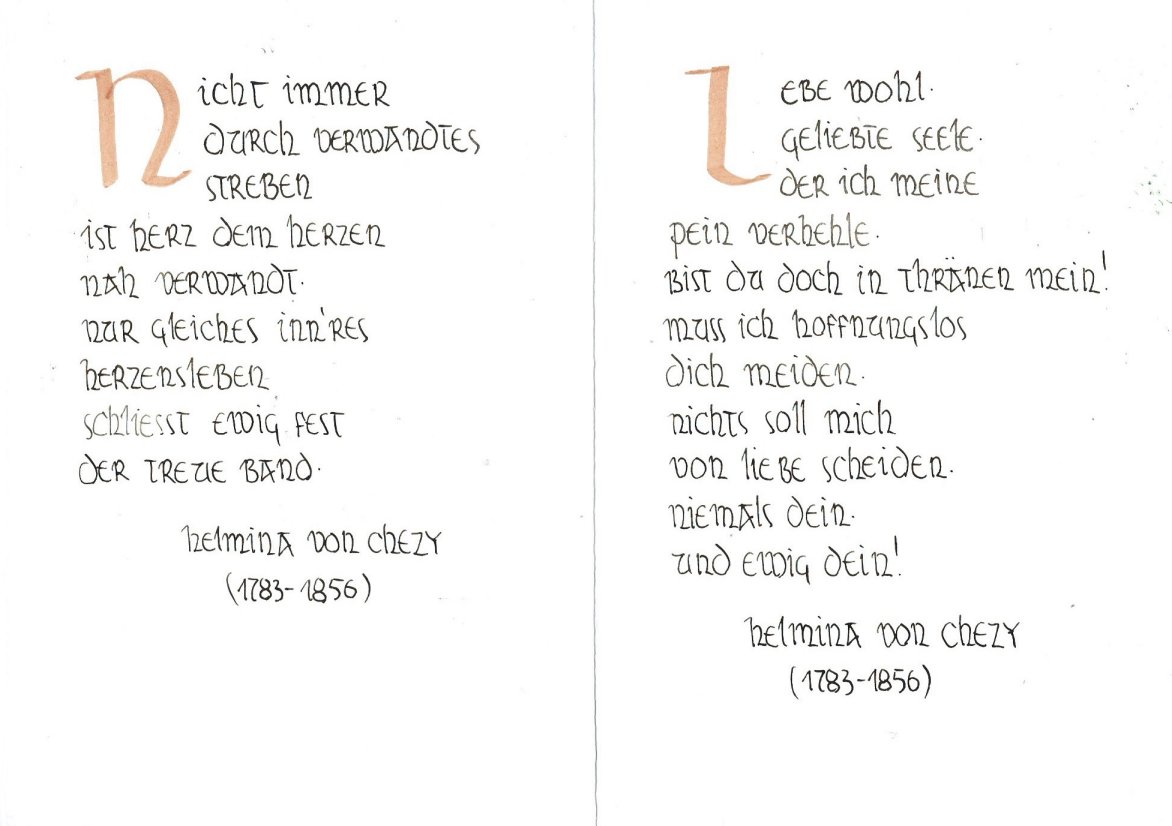 Nicht immer
durch verwandtes
streben
ist herz dem herzen
nah verwandt.
nur gleiches inn'res
herzensleben
schliesst ewig fest
der treue band.
helmina von chezy
(1783-1856)
Lebe wohl.
geliebte seele.
der ich meine
pein verhehle.
Bist du doch in thränen mein!
muss ich hoffnungslos
dich meiden.
nichts soll mich
von liebe scheiden.
niemals dein.
und ewig dein!
helmina von chezy
(1783-1856)